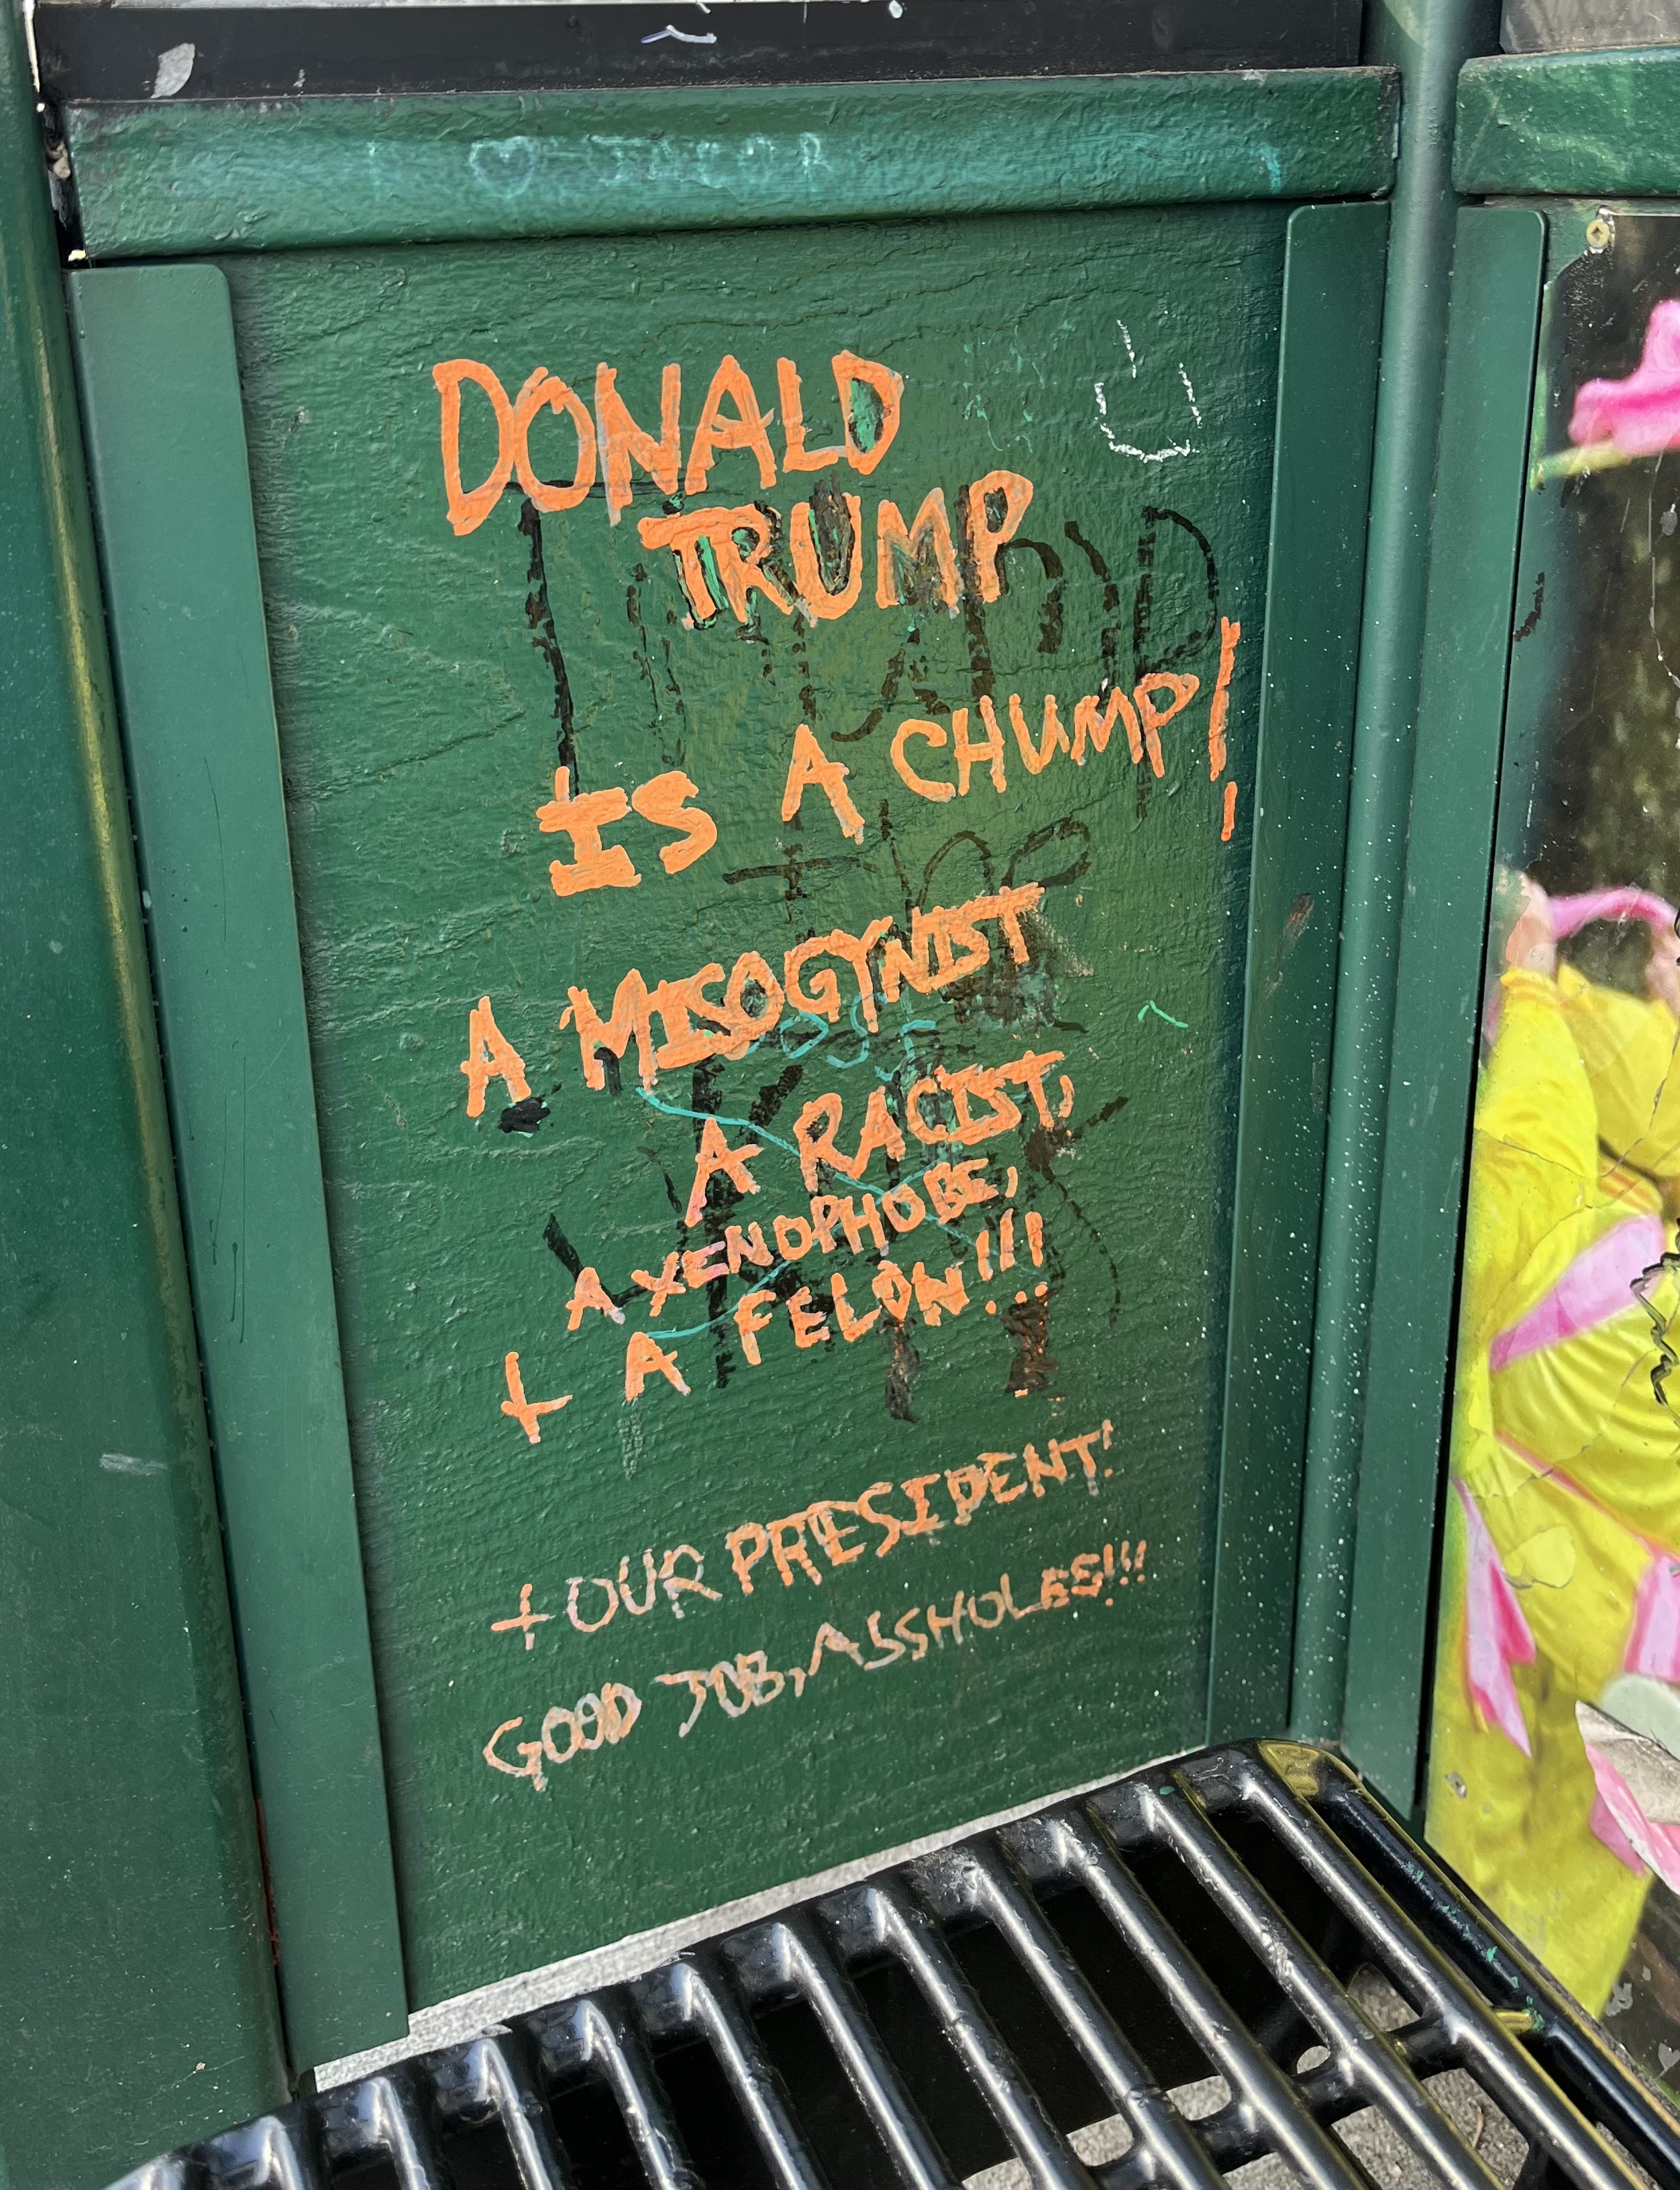 ♡ JACOB
DONALD
TRUMP
IS A CHUMP!
the
A MISOGYNIST
A RACIST,
A XENOPHOBE,
+ A FELON!!!
+ OUR PRESIDENT!
GOOD JOB, ASSHOLES!!!